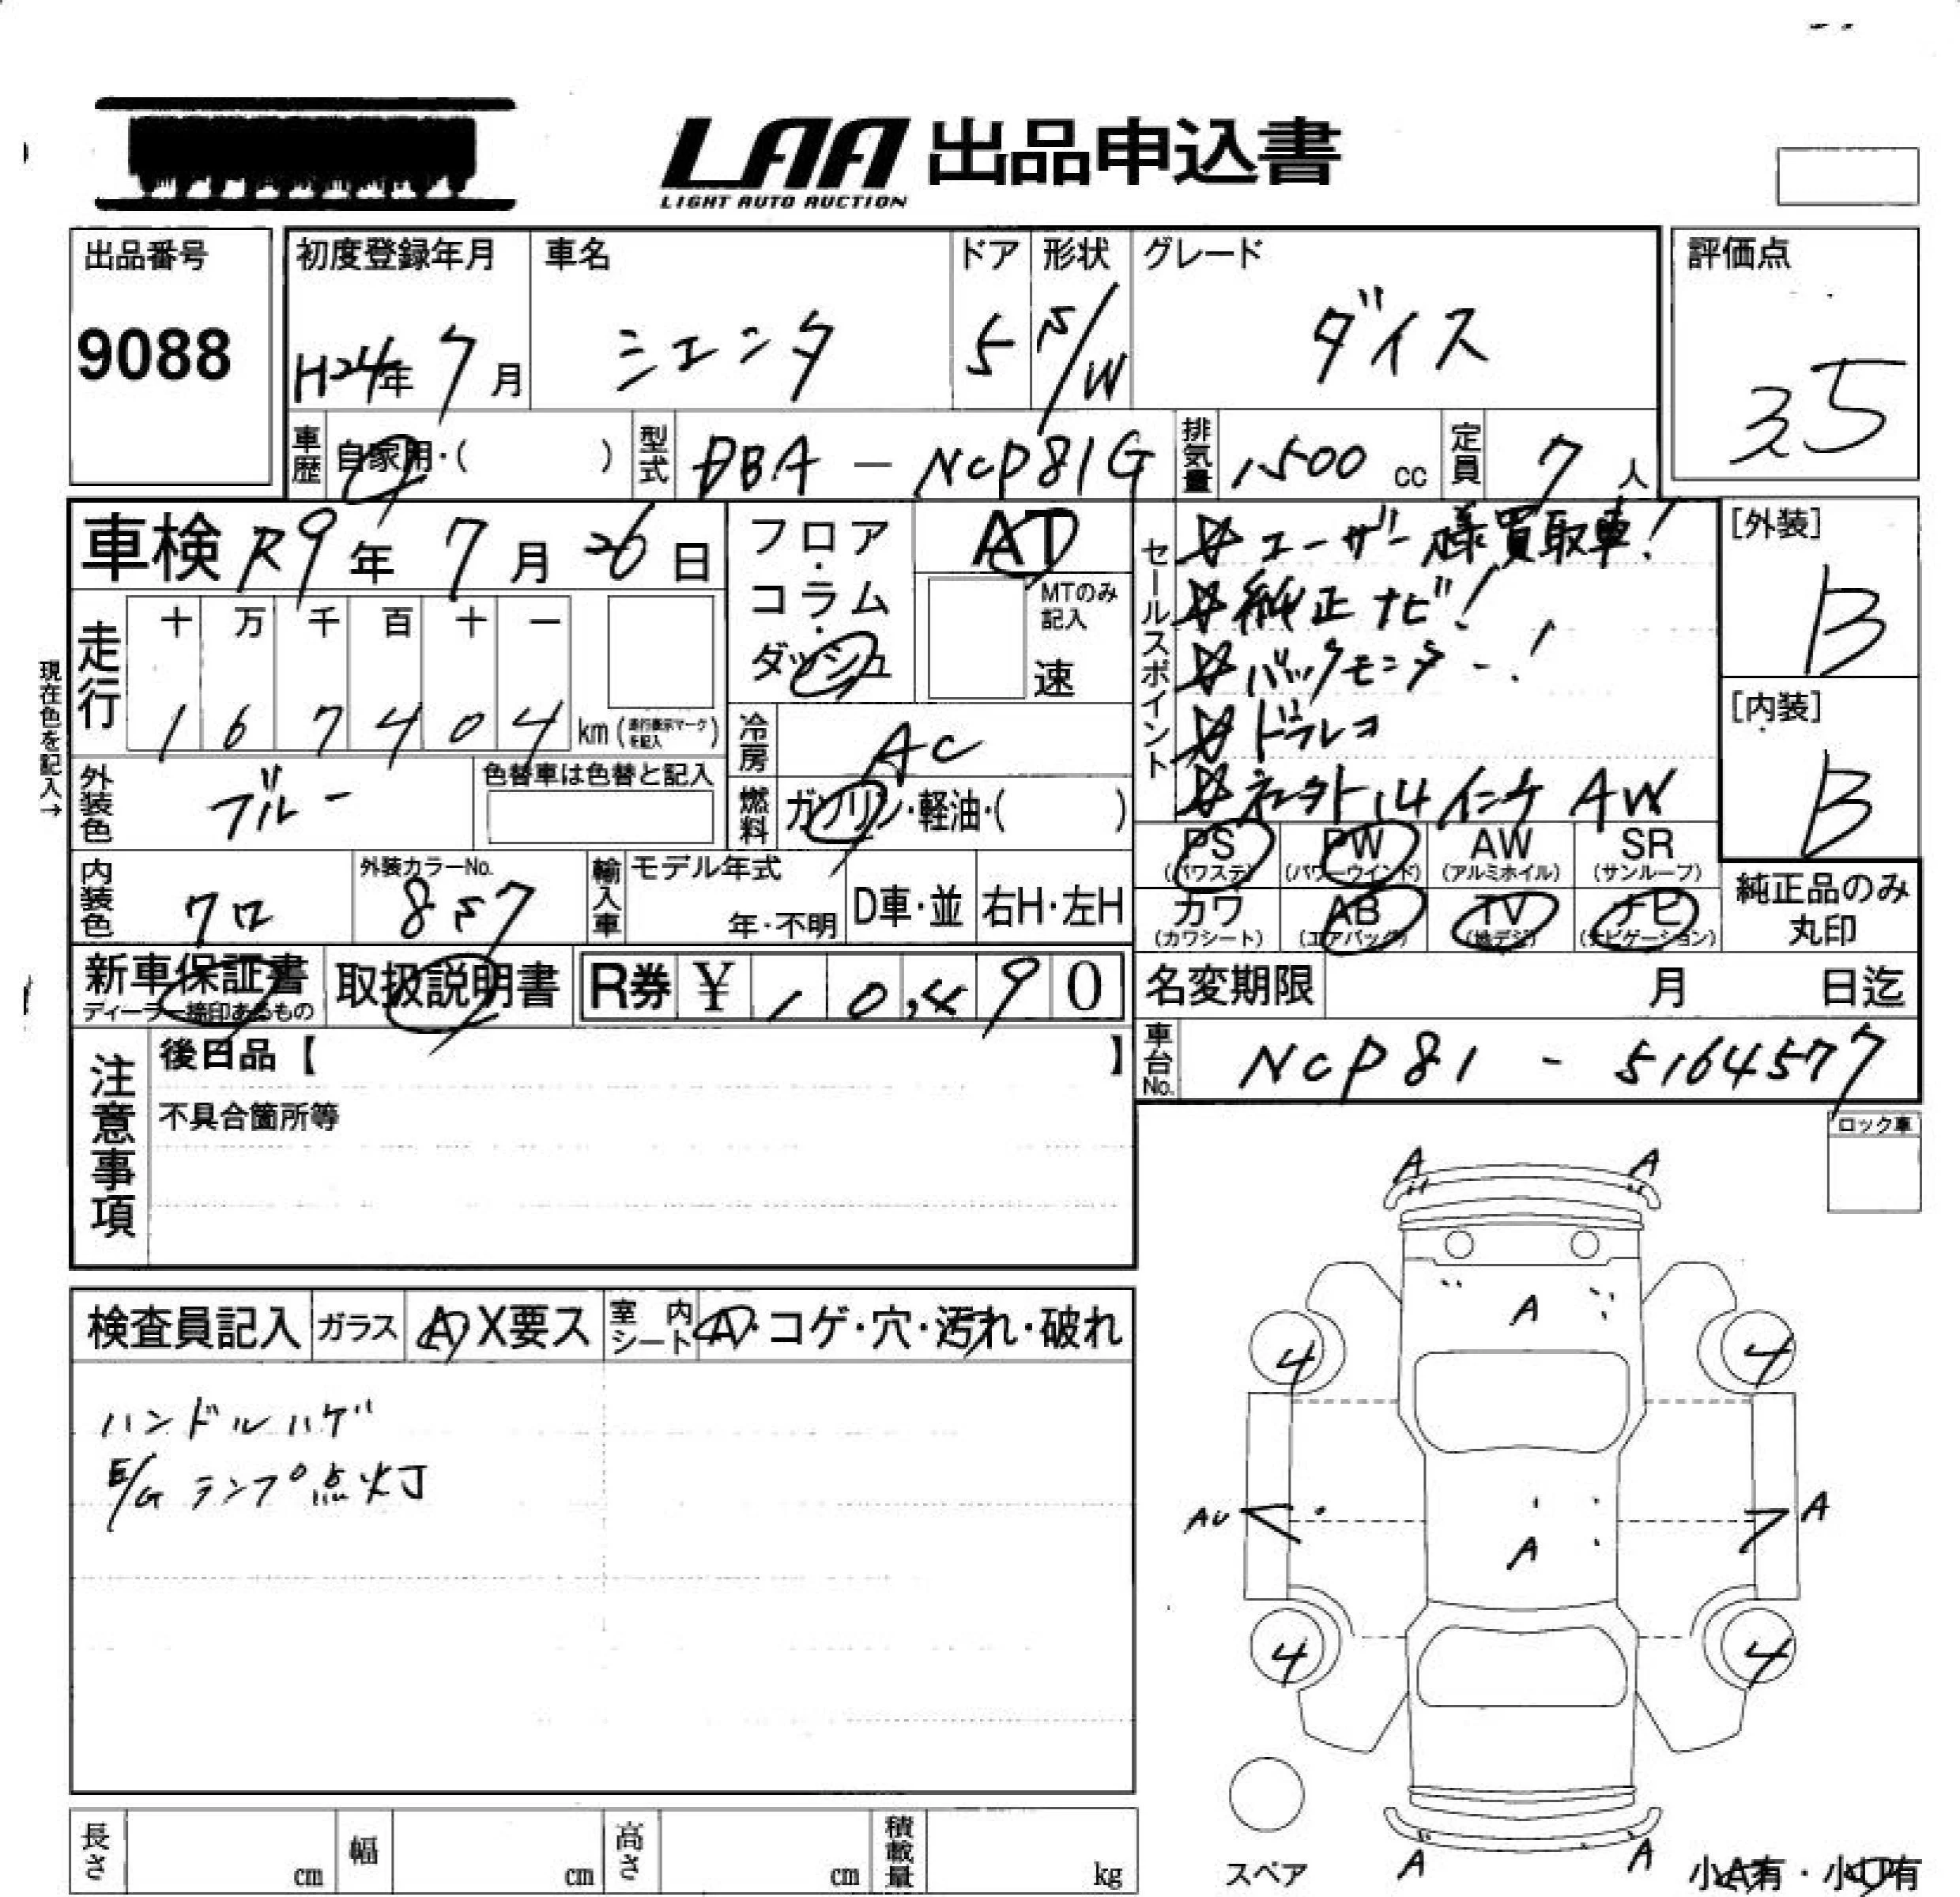 LAA 出品申込書
LIGHT AUTO AUCTION
出品番号
9088
初度登録年月
H24年 7月
車名
シエンタ
ドア
5
形状
S/W
グレード
ダイス
評価点
3.5
車歴 自家用・( )
型式 DBA - NCP81G
排気量 1,500 cc
定員 7 人
車検 R9年 7月 26日
フロア・コラム・ダッシュ
AT
MTのみ記入
速
セールスポイント
☆ユーザー様買取車!
☆純正ナビ!
☆バックモニター!
☆ドラレコ
☆社外14インチ AW
[外装]
B
[内装]
B
現在色を記入→
走行
十 万 千 百 十 一
1 6 7 4 0 4 km (走行表示マークを記入)
冷房 AC
外装色 ブルー
色替車は色替と記入
燃料 ガソリン・軽油・( )
内装色 クロ
外装カラーNo.
8S7
輸入車
モデル年式
年・不明
D車・並
右H・左H
PS (パワステ)
PW (パワーウインド)
AW (アルミホイル)
SR (サンルーフ)
カワ (カワシート)
AB (エアバッグ)
TV (地デジ)
ナビ (ナビゲーション)
純正品のみ丸印
新車保証書
ディーラー捺印あるもの
取扱説明書
R券 ¥ 10,490
名変期限 月 日迄
車台No. NCP81 - 5164577
注意事項
後日品【 】
不具合箇所等
ロック車
検査員記入
ガラス A・X要ス
室内シート A・コゲ・穴・汚れ・破れ
ハンドルハゲ
E/Gランプ点灯
A A
A
4 4
AU A
A
4 4
A A
スペア
小A有・小U有
長さ cm
幅 cm
高さ cm
積載量 kg